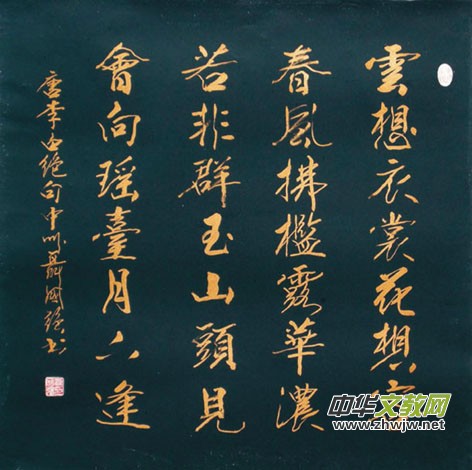 雲想衣裳花想容
春風拂檻露華濃
若非群玉山頭見
會向瑤臺月下逢
唐李白絕句中州聶國強书
中华文教网
www.zhwjw.net